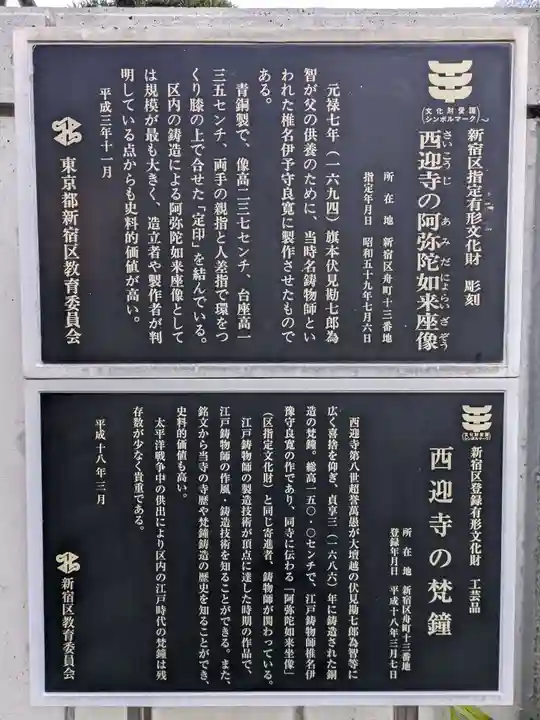 文化財愛護
シンボルマーク
新宿区指定有形文化財　彫刻
さいこうじ　あみだにょらいざぞう
西迎寺の阿弥陀如来座像
所在地　新宿区舟町十三番地
指定年月日　昭和五十九年七月六日
元禄七年（一六九四）旗本伏見勘七郎為
智が父の供養のために、当時名鋳物師とい
われた椎名伊予守良寛に製作させたもので
ある。
青銅製で、像高二三七センチ、台座高一
三五センチ、両手の親指と人差指で環をつ
くり膝の上で合せた「定印」を結んでいる。
区内の鋳造による阿弥陀如来座像として
は規模が最も大きく、造立者や製作者が判
明している点からも史料的価値が高い。
平成三年十一月
東京都新宿区教育委員会
文化財愛護
シンボルマーク
新宿区登録有形文化財　工芸品
西迎寺の梵鐘
所在地　新宿区舟町十三番地
登録年月日　平成十八年三月七日
西迎寺第八世超誉萬愚が大壇越の伏見勘七郎為智等に
広く喜捨を仰ぎ、貞享三（一六八六）年に鋳造された銅
造の梵鐘。総高一五〇・〇センチで、江戸鋳物師椎名伊
豫守良寛の作であり、同寺に伝わる「阿弥陀如来坐像」
（区指定文化財）と同じ寄進者、鋳物師が関わっている。
江戸鋳物師の製造技術が頂点に達した時期の作品で、
江戸鋳物師の作風・鋳造技術を知ることができる。また、
銘文から当寺の寺歴や梵鐘鋳造の歴史を知ることができ、
史料的価値も高い。
太平洋戦争中の供出により区内の江戸時代の梵鐘は残
存数が少なく貴重である。
平成十八年三月
新宿区教育委員会